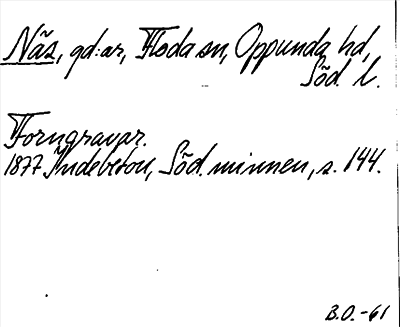 Näs, gd:ar, Floda sn, Oppunda hd,
Söd. l.
Forngravar.
1877 Indebetou, Söd. minnen, s. 144.
B.O.-61